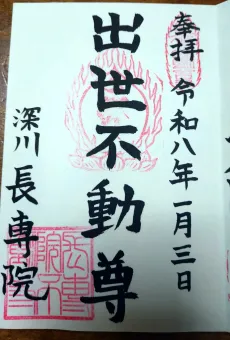 奉拝
令和八年一月三日
出世不動尊
深川
長専院